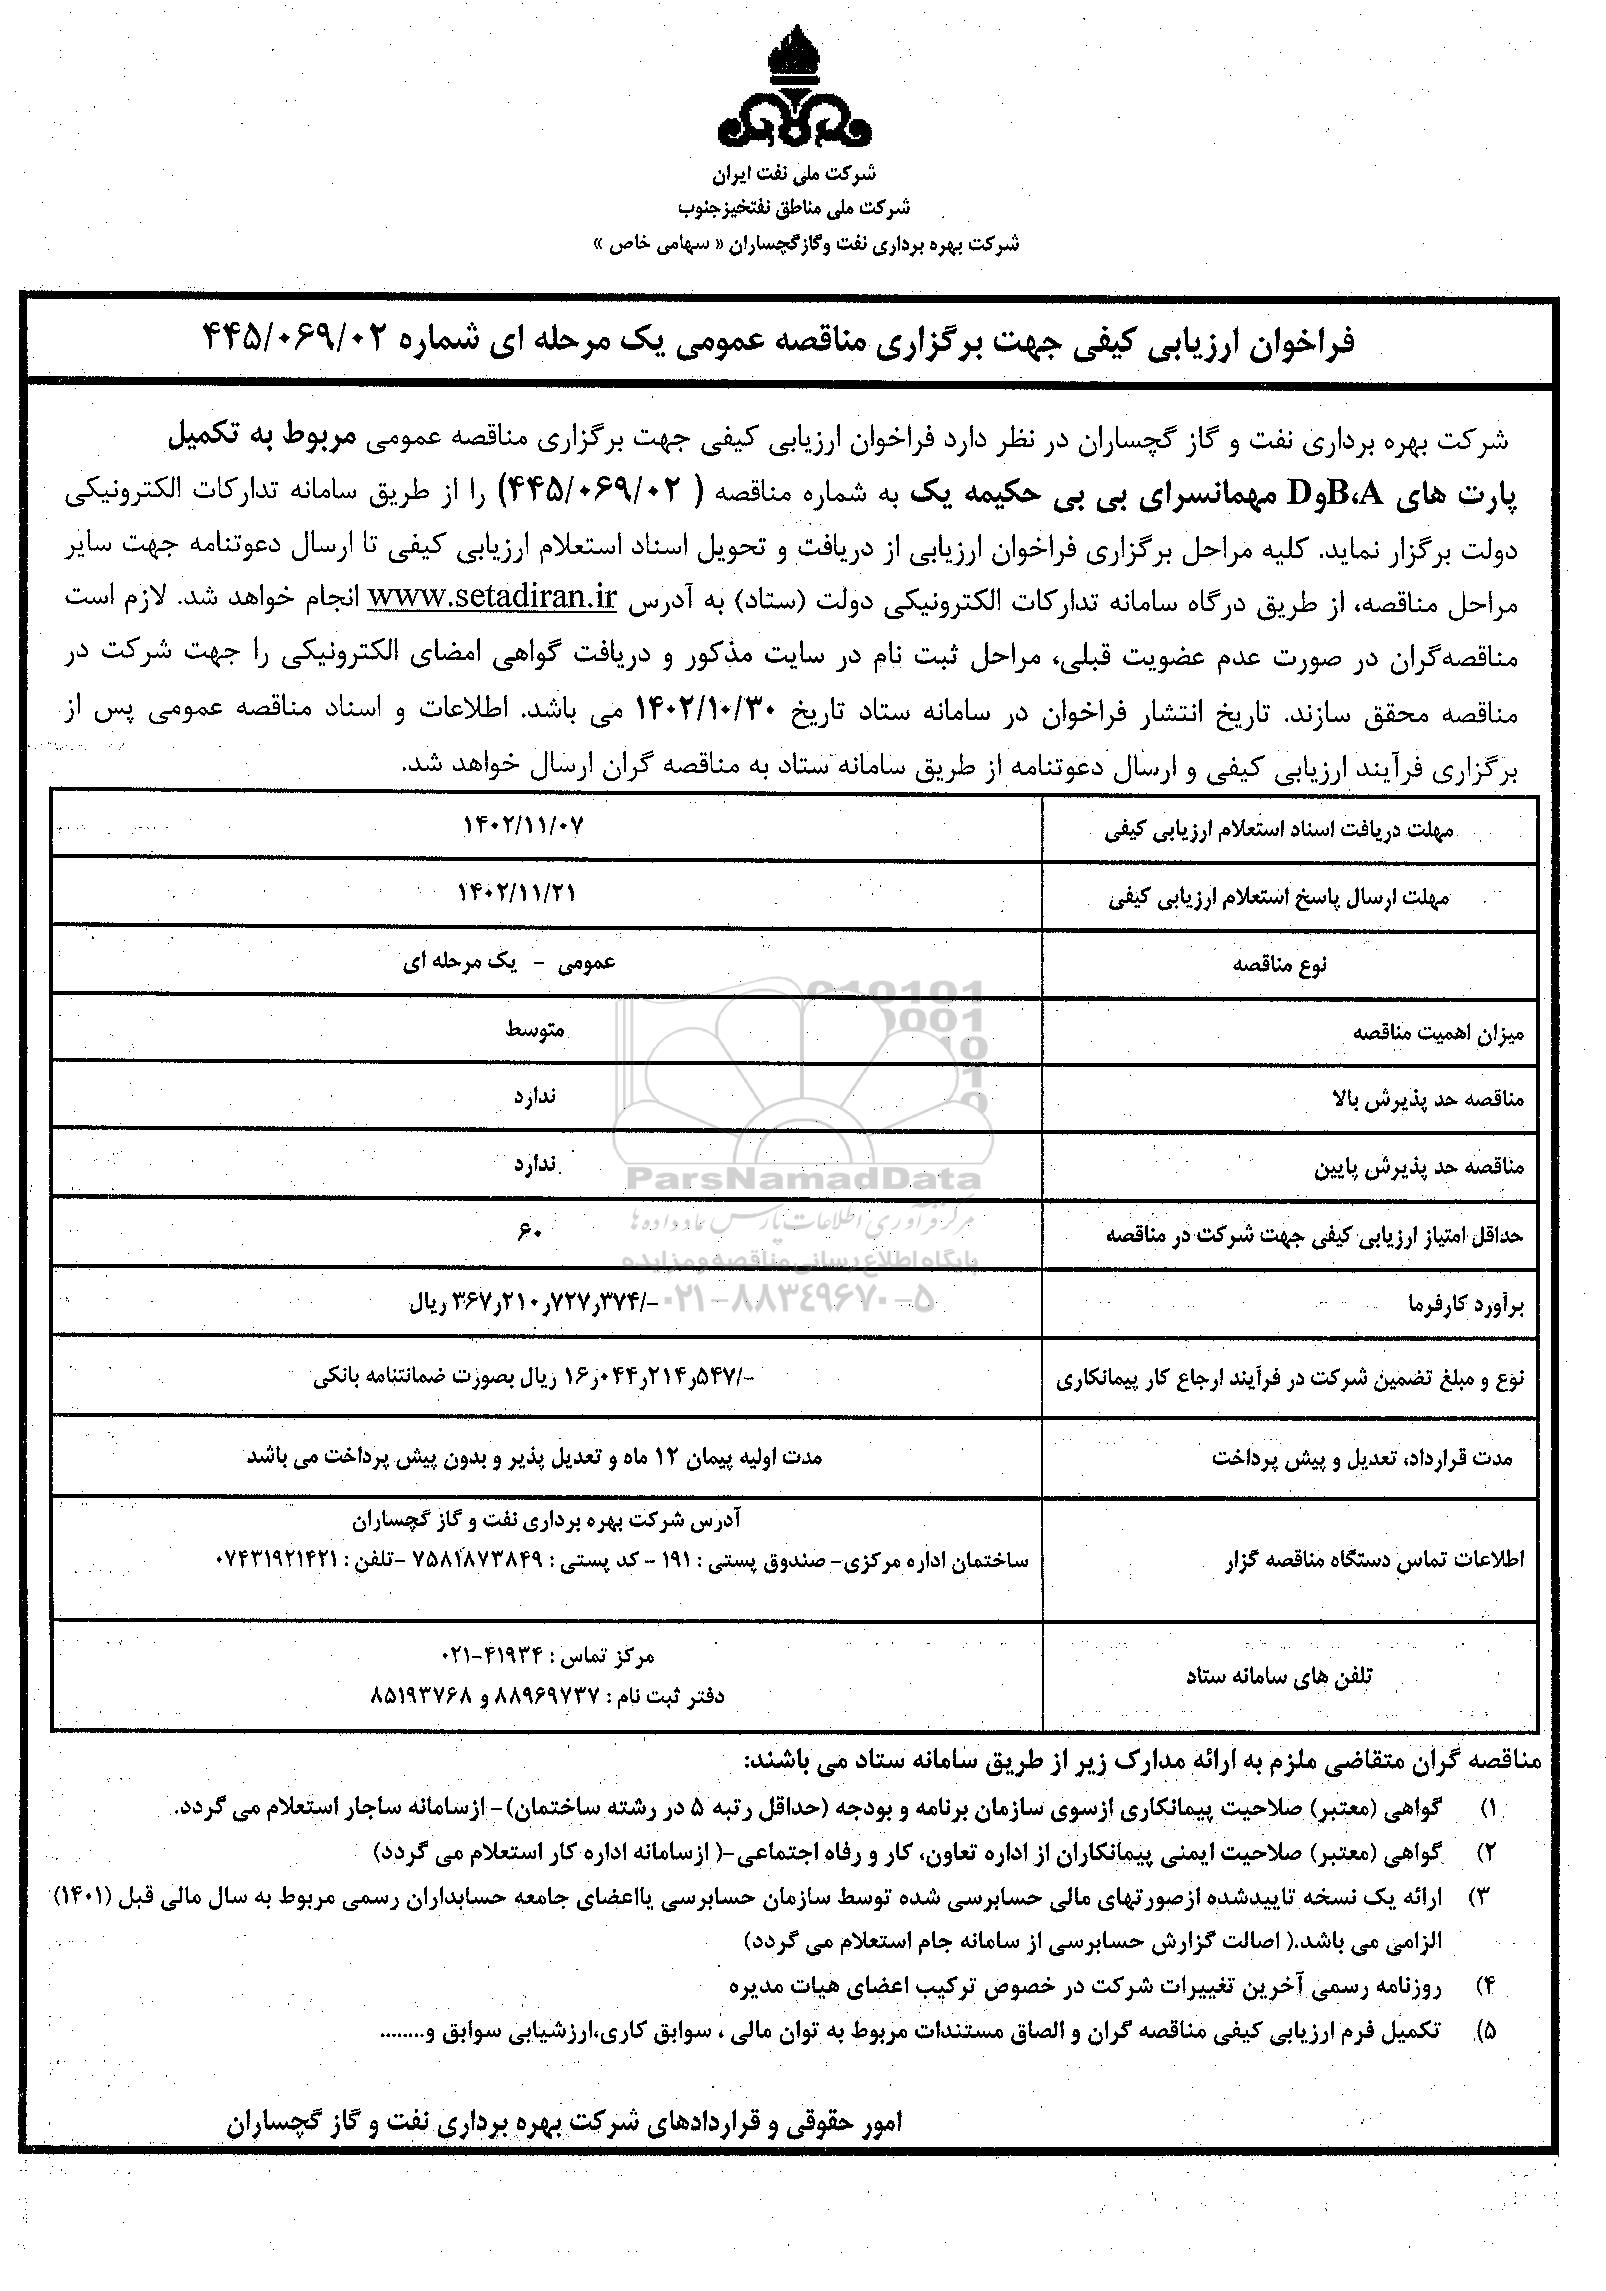 شرکت ملی نفت ایران
شرکت ملی مناطق نفتخیزجنوب
شرکت بهره برداری نفت وگازگچساران « سهامی خاص »
فراخوان ارزیابی کیفی جهت برگزاری مناقصه عمومی یک مرحله ای شماره ۴۴۵/۰۶۹/۰۲
شرکت بهره برداری نفت و گاز گچساران در نظر دارد فراخوان ارزیابی کیفی جهت برگزاری مناقصه عمومی مربوط به تکمیل
پارت های A،BوD مهمانسرای بی بی حکیمه یک به شماره مناقصه ( ۴۴۵/۰۶۹/۰۲) را از طریق سامانه تدارکات الکترونیکی
دولت برگزار نماید. کلیه مراحل برگزاری فراخوان ارزیابی از دریافت و تحویل اسناد استعلام ارزیابی کیفی تا ارسال دعوتنامه جهت سایر
مراحل مناقصه، از طریق درگاه سامانه تدارکات الکترونیکی دولت (ستاد) به آدرس www.setadiran.ir انجام خواهد شد. لازم است
مناقصه‌گران در صورت عدم عضویت قبلی، مراحل ثبت نام در سایت مذکور و دریافت گواهی امضای الکترونیکی را جهت شرکت در
مناقصه محقق سازند. تاریخ انتشار فراخوان در سامانه ستاد تاریخ ۱۴۰۲/۱۰/۳۰ می باشد. اطلاعات و اسناد مناقصه عمومی پس از
برگزاری فرآیند ارزیابی کیفی و ارسال دعوتنامه از طریق سامانه ستاد به مناقصه گران ارسال خواهد شد.
مهلت دریافت اسناد استعلام ارزیابی کیفی ۱۴۰۲/۱۱/۰۷
مهلت ارسال پاسخ استعلام ارزیابی کیفی ۱۴۰۲/۱۱/۲۱
نوع مناقصه عمومی - یک مرحله ای
میزان اهمیت مناقصه متوسط
مناقصه حد پذیرش بالا ندارد
مناقصه حد پذیرش پایین ندارد
حداقل امتیاز ارزیابی کیفی جهت شرکت در مناقصه ۶۰
برآورد کارفرما ۳۶۷٫۲۱۰٫۷۲۷٫۳۷۴/- ریال
نوع و مبلغ تضمین شرکت در فرآیند ارجاع کار پیمانکاری ۱۶٫۰۴۴٫۲۱۴٫۵۴۷/- ریال بصورت ضمانتنامه بانکی
مدت قرارداد، تعدیل و پیش پرداخت مدت اولیه پیمان ۱۲ ماه و تعدیل پذیر و بدون پیش پرداخت می باشد
آدرس شرکت بهره برداری نفت و گاز گچساران
اطلاعات تماس دستگاه مناقصه گزار ساختمان اداره مرکزی- صندوق پستی : ۱۹۱ - کد پستی : ۷۵۸۱۸۷۳۸۴۹ -تلفن : ۰۷۴۳۱۹۲۱۴۲۱
مرکز تماس : ۴۱۹۳۴-۰۲۱
تلفن های سامانه ستاد
دفتر ثبت نام : ۸۸۹۶۹۷۳۷ و ۸۵۱۹۳۷۶۸
010101
0001
10
1
0
ParsNamadData
مرکز فرآوری اطلاعات پارس نماد داده ها
پایگاه اطلاع رسانی مناقصه و مزایده
۰۲۱-۸۸۳۴۹۶۷۰-۵
مناقصه گران متقاضی ملزم به ارائه مدارک زیر از طریق سامانه ستاد می باشند:
۱) گواهی (معتبر) صلاحیت پیمانکاری ازسوی سازمان برنامه و بودجه (حداقل رتبه ۵ در رشته ساختمان)- ازسامانه ساجار استعلام می گردد.
۲) گواهی (معتبر) صلاحیت ایمنی پیمانکاران از اداره تعاون، کار و رفاه اجتماعی-( ازسامانه اداره کار استعلام می گردد)
۳) ارائه یک نسخه تاییدشده ازصورتهای مالی حسابرسی شده توسط سازمان حسابرسی یااعضای جامعه حسابداران رسمی مربوط به سال مالی قبل (۱۴۰۱)
الزامی می باشد.( اصالت گزارش حسابرسی از سامانه جام استعلام می گردد)
۴) روزنامه رسمی آخرین تغییرات شرکت در خصوص ترکیب اعضای هیات مدیره
۵) تکمیل فرم ارزیابی کیفی مناقصه گران و الصاق مستندات مربوط به توان مالی ، سوابق کاری،ارزشیابی سوابق و........
امور حقوقی و قراردادهای شرکت بهره برداری نفت و گاز گچساران